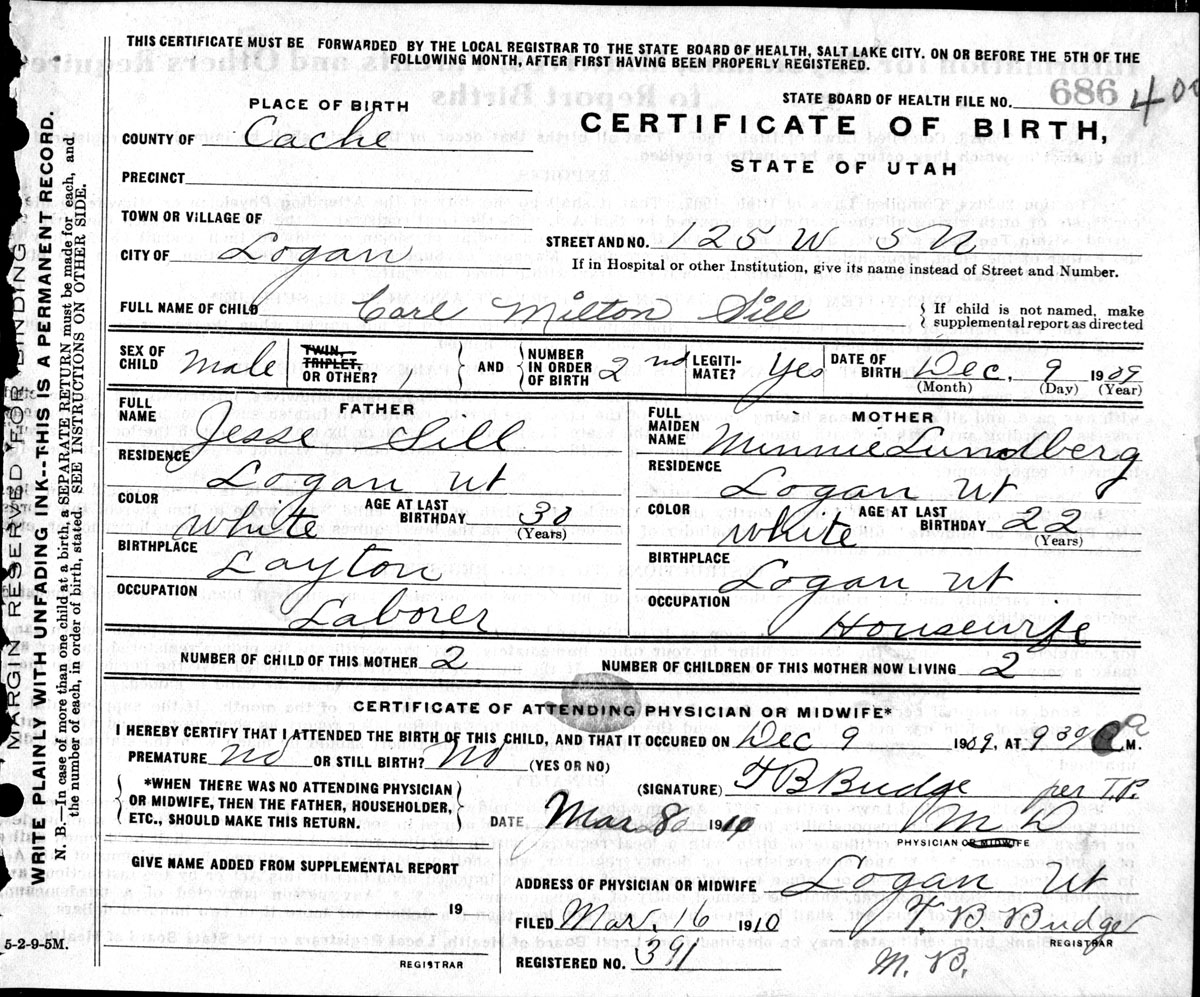 THIS CERTIFICATE MUST BE FORWARDED BY THE LOCAL REGISTRAR TO THE STATE BOARD OF HEALTH, SALT LAKE CITY. ON OR BEFORE THE 5TH OF THE
FOLLOWING MONTH, AFTER FIRST HAVING BEEN PROPERLY REGISTERED.
STATE BOARD OF HEALTH FILE NO. 686 400
PLACE OF BIRTH
CERTIFICATE OF BIRTH,
STATE OF UTAH
COUNTY OF Cache
PRECINCT
TOWN OR VILLAGE OF
CITY OF Logan
STREET AND NO. 125 W 5 N
If in Hospital or other Institution, give its name instead of Street and Number.
FULL NAME OF CHILD Carl Milton Sill
If child is not named, make
supplemental report as directed
SEX OF
CHILD Male
TWIN,
TRIPLET,
OR OTHER? 1
AND
NUMBER
IN ORDER
OF BIRTH 2nd
LEGITI-
MATE? Yes
DATE OF
BIRTH Dec, 9 1909
(Month) (Day) (Year)
FATHER
FULL
NAME Jesse Sill
RESIDENCE
Logan Ut
COLOR White
AGE AT LAST
BIRTHDAY 30
(Years)
BIRTHPLACE Layton
OCCUPATION Laborer
MOTHER
FULL
MAIDEN
NAME Minnie Lundberg
RESIDENCE
Logan Ut
COLOR White
AGE AT LAST
BIRTHDAY 22
(Years)
BIRTHPLACE
Logan Ut
OCCUPATION
Housewife
NUMBER OF CHILD OF THIS MOTHER 2
NUMBER OF CHILDREN OF THIS MOTHER NOW LIVING 2
CERTIFICATE OF ATTENDING PHYSICIAN OR MIDWIFE*
I HEREBY CERTIFY THAT I ATTENDED THE BIRTH OF THIS CHILD, AND THAT IT OCCURED ON Dec 9 1909, AT 9 30 a M.
PREMATURE No OR STILL BIRTH? No (YES OR NO)
*WHEN THERE WAS NO ATTENDING PHYSICIAN
OR MIDWIFE, THEN THE FATHER, HOUSEHOLDER,
ETC., SHOULD MAKE THIS RETURN.
(SIGNATURE) T B Budge per T.P.
DATE Mar 8 1910
M D
PHYSICIAN OR MIDWIFE
GIVE NAME ADDED FROM SUPPLEMENTAL REPORT
19
REGISTRAR
ADDRESS OF PHYSICIAN OR MIDWIFE Logan Ut
FILED Mar. 6 1910 T. B. Budge
REGISTRAR
REGISTERED NO. 391
M. B.
MARGIN RESERVED FOR BINDING
WRITE PLAINLY WITH UNFADING INK--THIS IS A PERMANENT RECORD.
N. B.—In case of more than one child at a birth, a SEPARATE RETURN must be made for each, and
the number of each, in order of birth, stated. SEE INSTRUCTIONS ON OTHER SIDE.
5-2-9-5M.